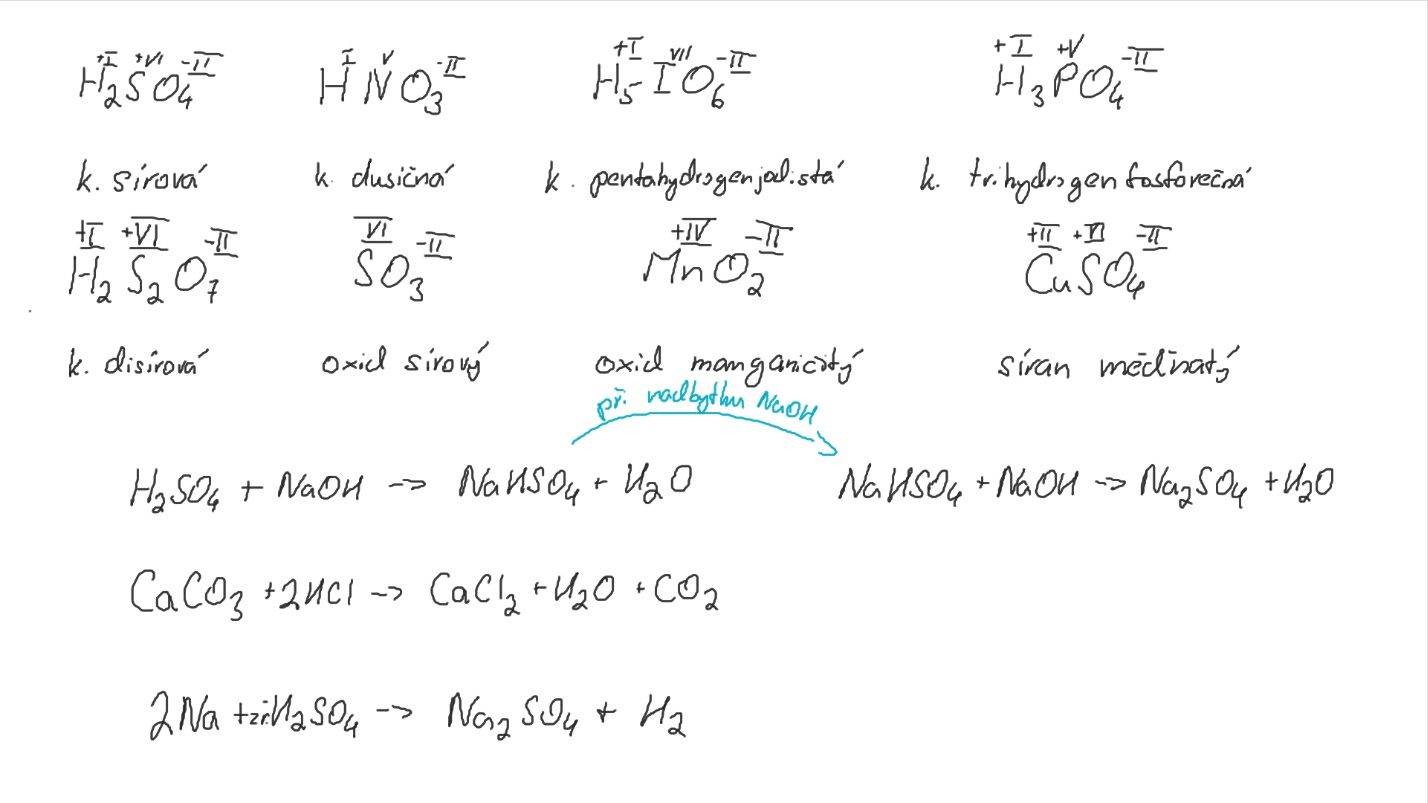 +I +VI -II I V -II +I VII -II +I +V -II
H2SO4 HNO3 H5IO6 H3PO4
k. sírová k. dusičná k. pentahydrogenjodistá k. trihydrogenfosforečná
+I +VI -II VI -II +IV -II +II +VI -II
H2S2O7 SO3 MnO2 CuSO4
k. disírová oxid sírový oxid manganičitý síran měďnatý
při nadbytku NaOH
H2SO4 + NaOH -> NaHSO4 + H2O NaHSO4 + NaOH -> Na2SO4 + H2O
CaCO3 + 2HCl -> CaCl2 + H2O + CO2
2Na + zř. H2SO4 -> Na2SO4 + H2